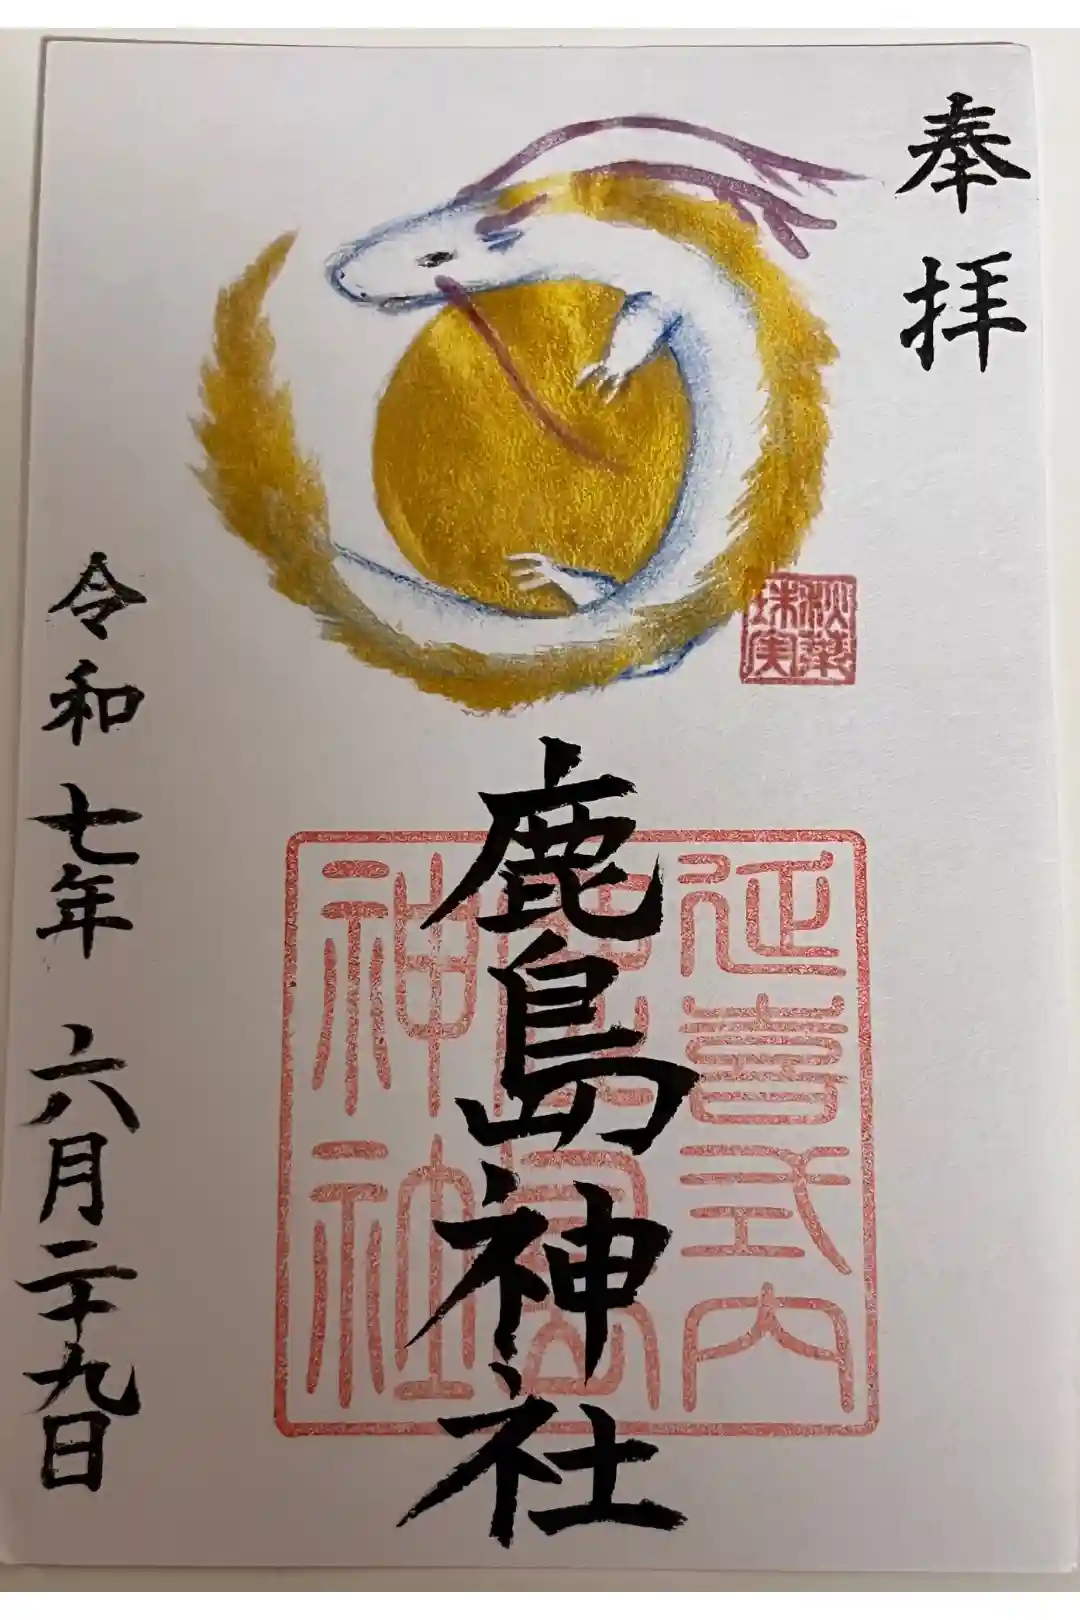 奉拝
秋葉
珠実
鹿島神社
延喜式内
鹿島
神社
令和七年 六月二十九日